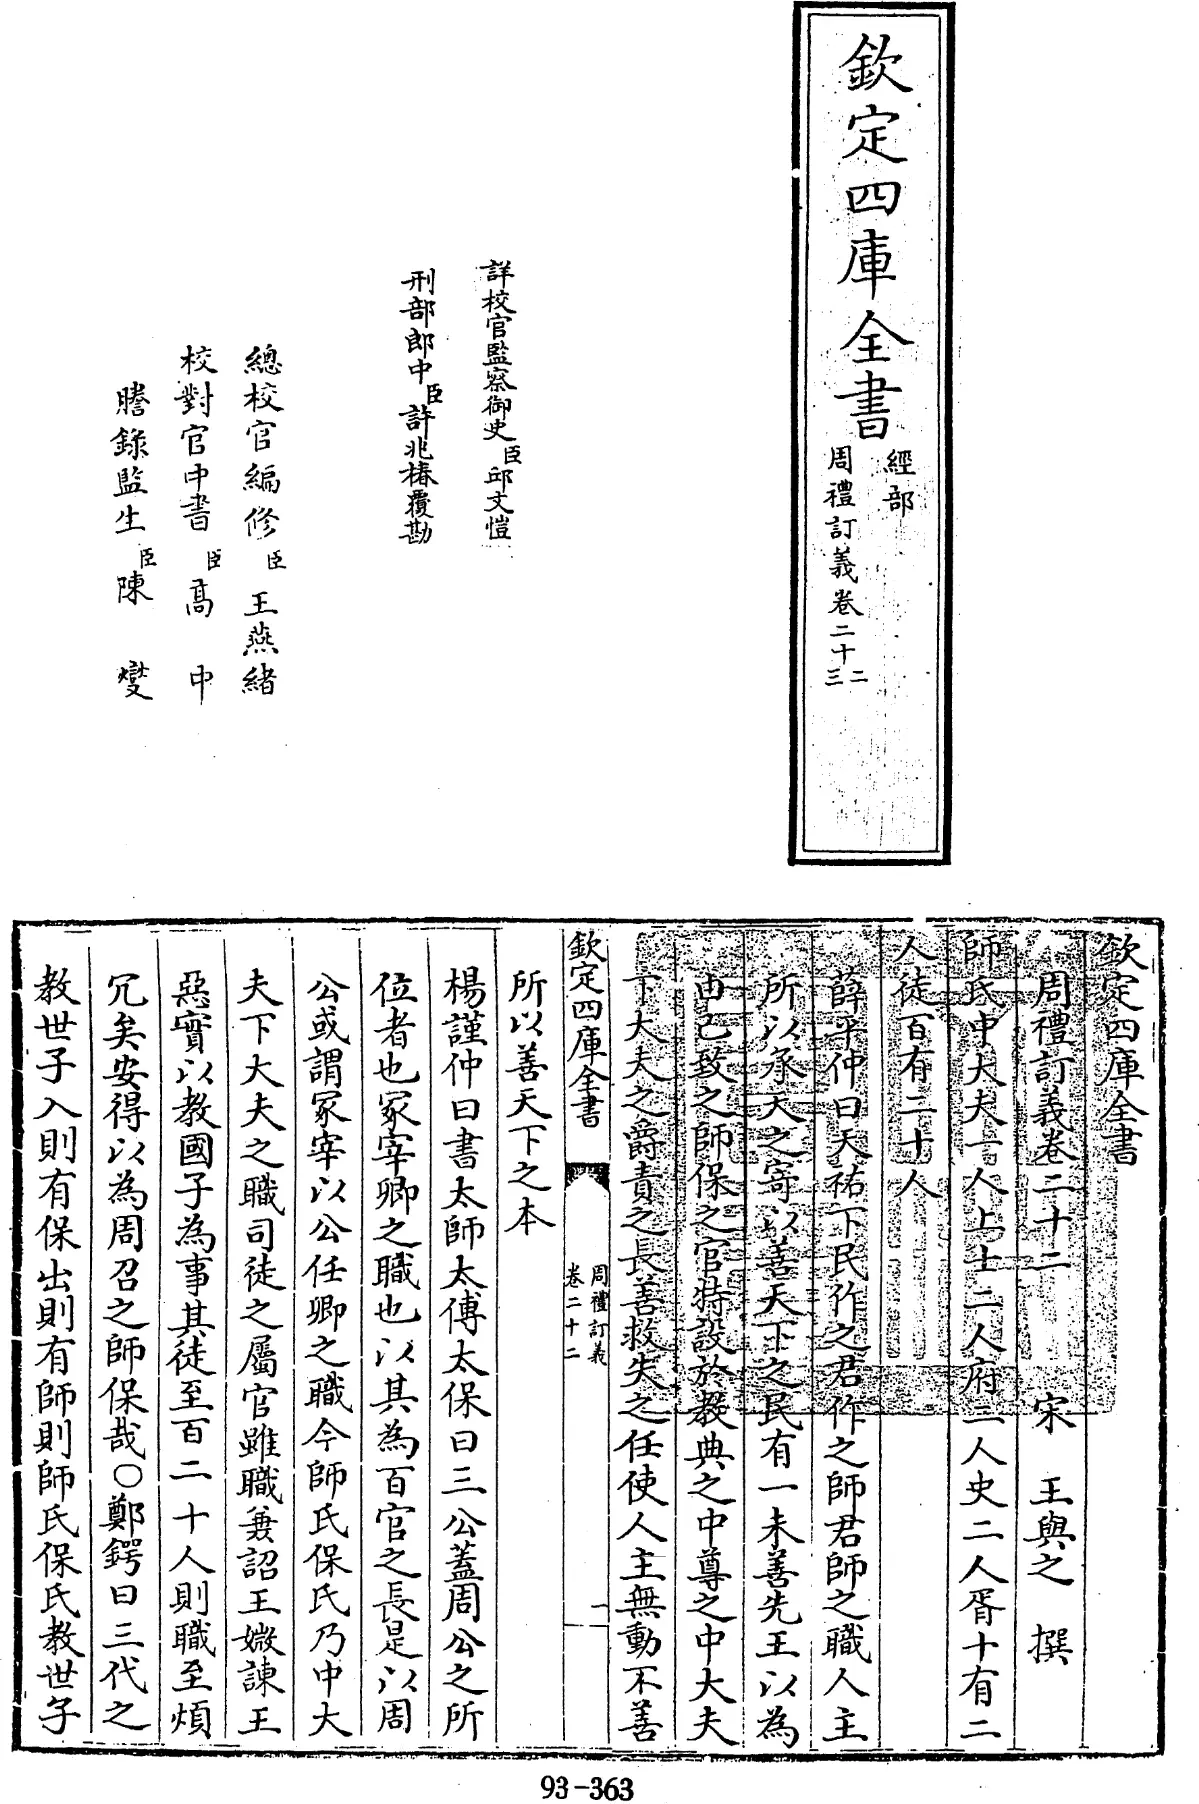 欽定四庫全書
經部
周禮訂義卷二十二
三
詳校官監察御史臣邱文愷
刑部郎中臣許兆椿覆勘
總校官編修臣王燕緒
校對官中書臣高中
謄錄監生臣陳燮
欽定四庫全書
周禮訂義卷二十二 宋 王與之 撰
師氏中大夫一人上士二人府二人史二人胥十有二
人徒百有二十人
薛平仲曰天祐下民作之君作之師君師之職人主
所以承天之寄以善天下之民有一未善先王以為
由己致之師保之官特設於教典之中尊之中大夫
下大夫之爵責之長善救失之任使人主無動不善
欽定四庫全書
周禮訂義
卷二十二
一
所以善天下之本
楊謹仲曰書太師太傅太保曰三公蓋周公之所
位者也冢宰卿之職也以其為百官之長是以周
公或謂冢宰以公任卿之職今師氏保氏乃中大
夫下大夫之職司徒之屬官雖職兼詔王媺諫王
惡實以教國子為事其徒至百二十人則職至煩
冗矣安得以為周召之師保哉○鄭鍔曰三代之
教世子入則有保出則有師則師氏保氏教世子
93-363